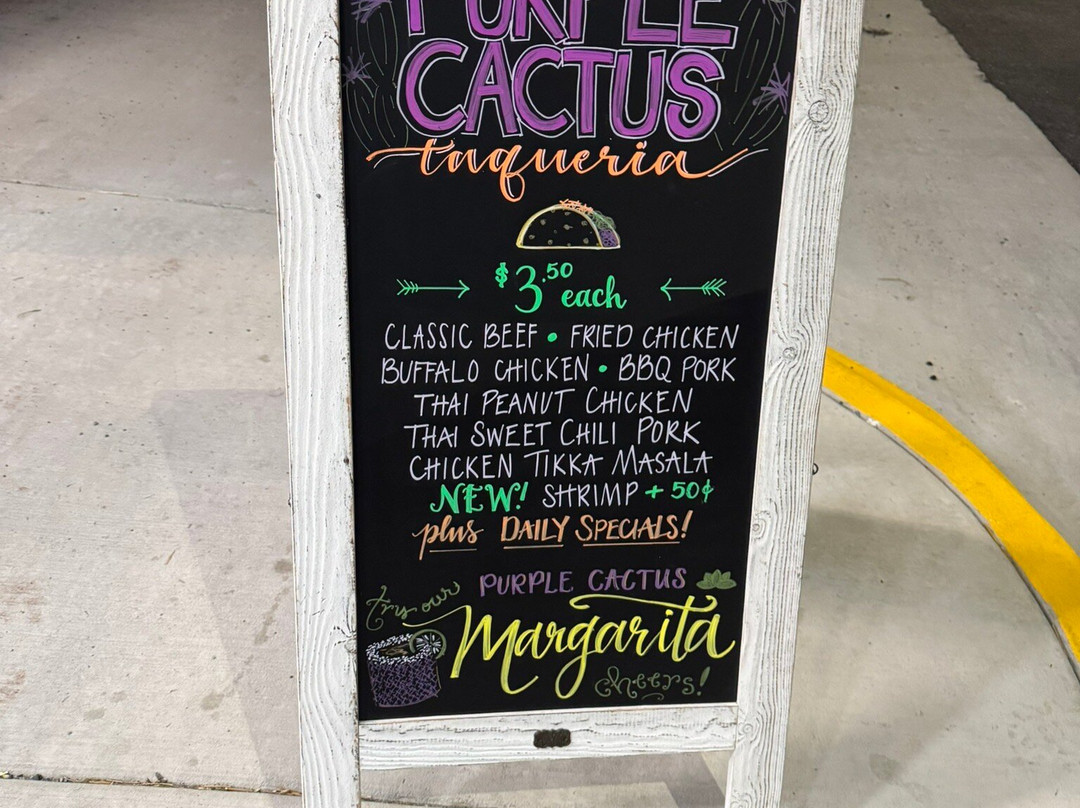 PURPLE
CACTUS
taqueria
$3.50 each
CLASSIC BEEF • FRIED CHICKEN
BUFFALO CHICKEN • BBQ PORK
THAI PEANUT CHICKEN
THAI SWEET CHILI PORK
CHICKEN TIKKA MASALA
NEW! SHRIMP + 50¢
plus DAILY SPECIALS!
try our PURPLE CACTUS
Margarita
cheers!